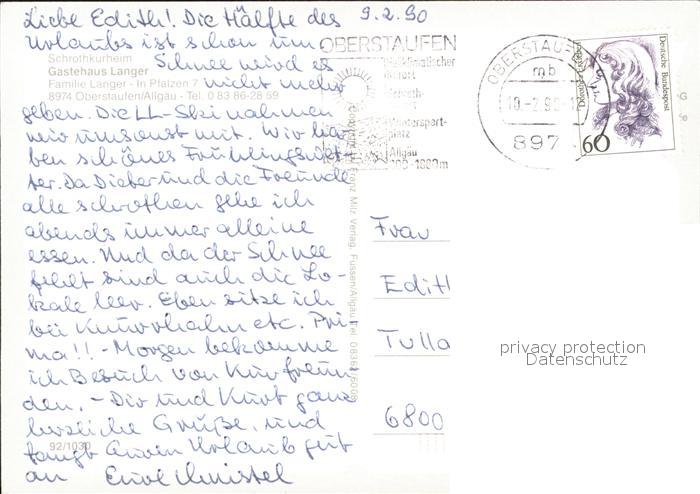 Liebe Edith! Die Hälfte des 9.2.90
Urlaubs ist schon um.
Schnee wird es
nicht mehr
geben. Die LL-Ski nahmen
wir umsonst mit. Wir ha-
ben schönes Frühlingswet-
ter. Da Dieter und die Freunde
alle schrothen gehe ich
abends immer alleine
essen. Und da der Schnee
fehlt sind auch die Lo-
kale leer. Eben sitze ich
bei Knurrhahn etc. Pri-
ma!! - Morgen bekomme
ich Besuch von Kurfreun-
den. - Dir und Kurt ganz
herzliche Grüße, und
fangt Euren Urlaub gut
an Eure
Schrothkurheim
Gästehaus Langer
Familie Langer - In Pfalzen 7
8974 Oberstaufen/Allgäu - Tel. 0 83 86-28 59
92/1030
Franz Milz Verlag, Füssen/Allgäu Tel. 08362/6008
OBERSTAUFEN
Heilklimatischer
Kurort
Schroth-
Wintersport-
platz
Allgäu
OBERSTAUFEN
mb
10.-2.90
897
Deutsche Bundespost
60
Frau
Edith
Tulla
6800
privacy protection
Datenschutz